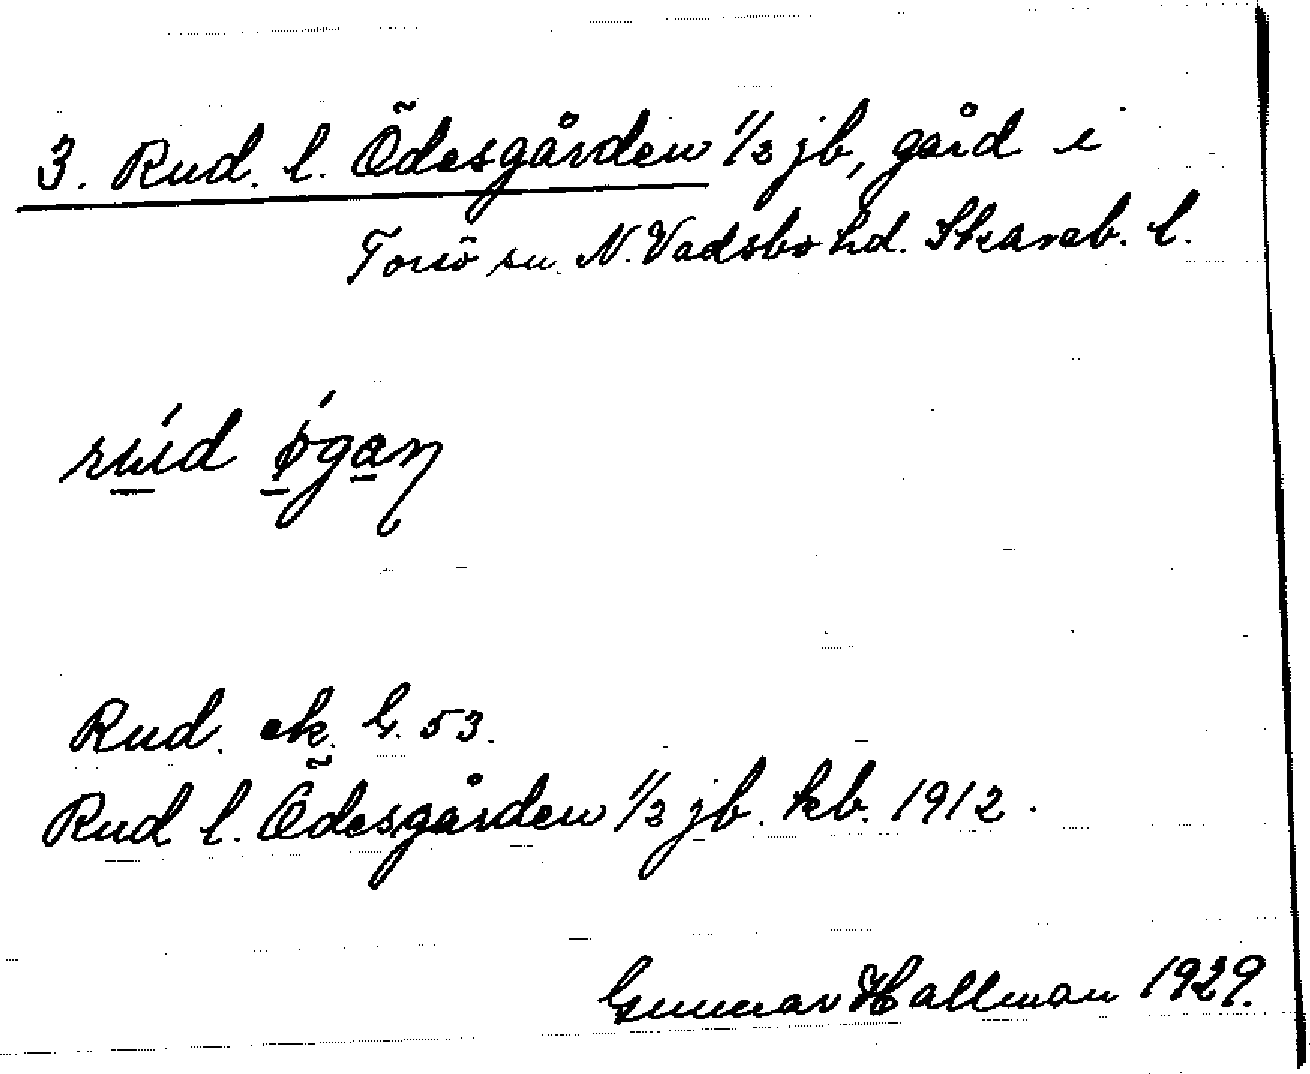 3. Rud. l. Ödesgården 1/3 jb, gård i
Torsö sn. N. Vadsbo hd. Skarab. l.
rúd ǿgaɳ
Rud. ek. G. 53.
Rud l. Ödesgården 1/3 jb. kb. 1912.
Gunnar Hallman 1929.